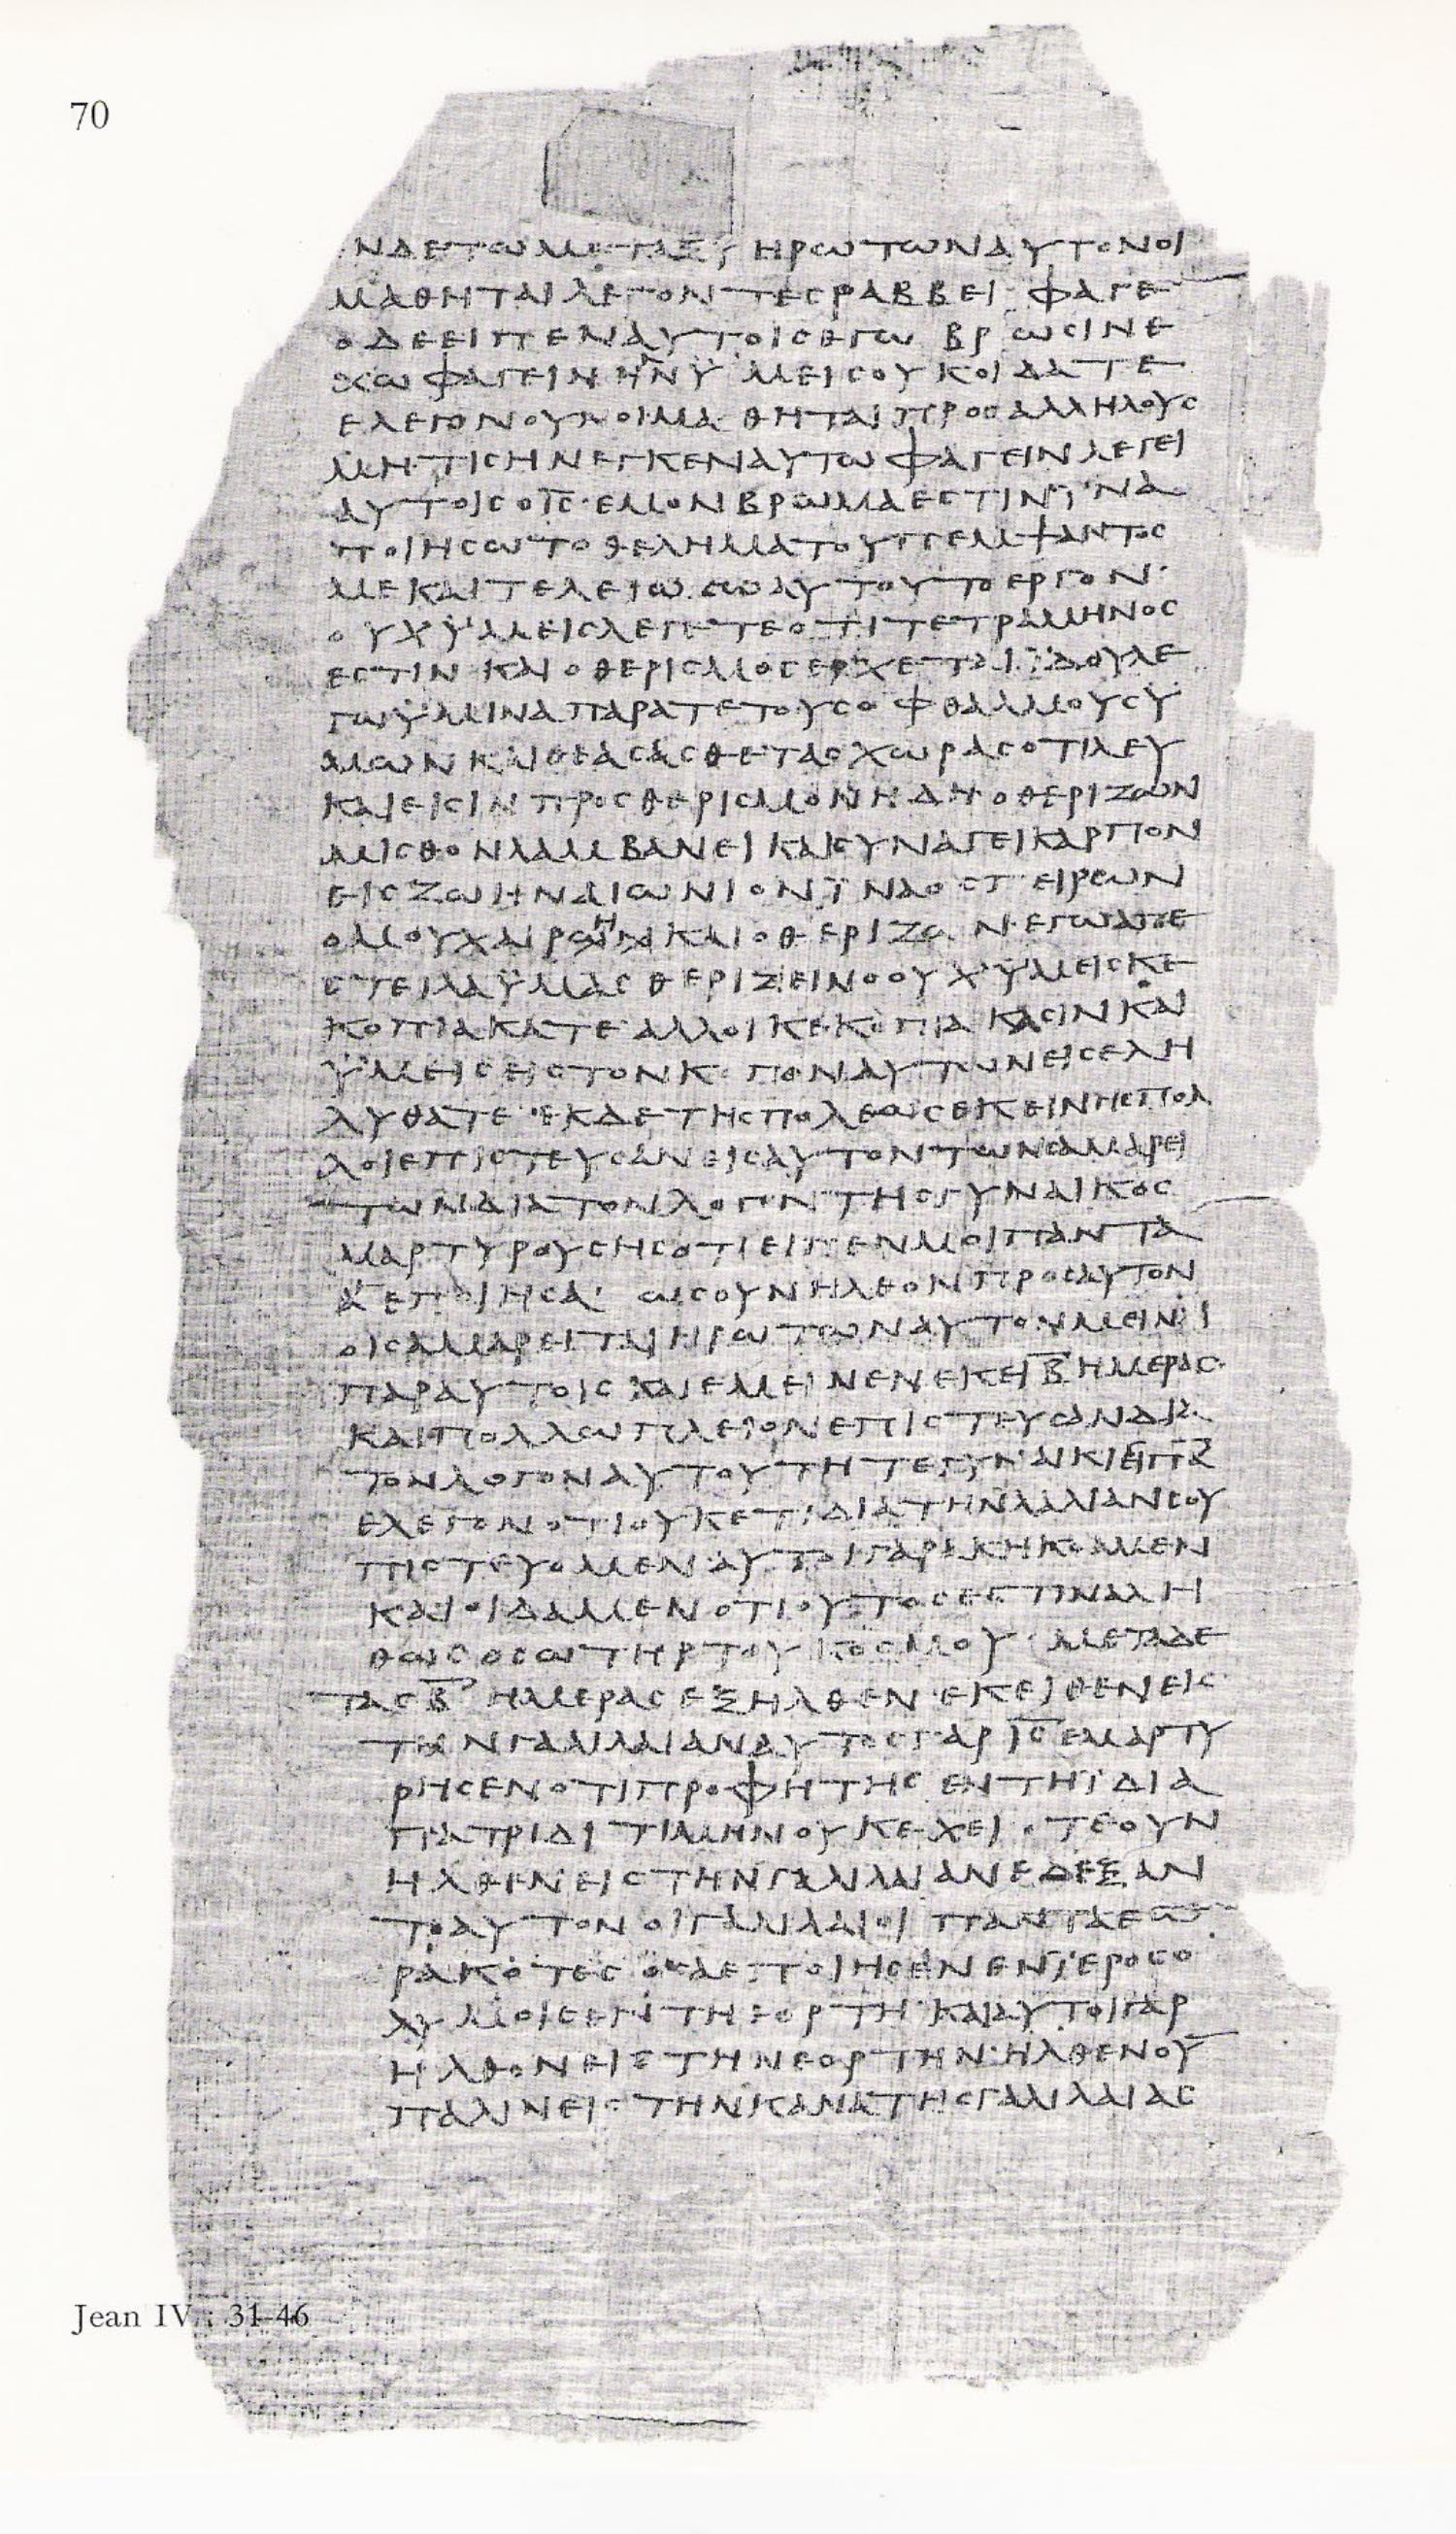 70
ΝΔΕΤΩΜΕΤΑΞΥ ΗΡΩΤΩΝΑΥΤΟΝΟΙ
ΜΑΘΗΤΑΙΛΕΓΟΝΤΕϹΡΑΒΒΕΙ ΦΑΓΕ
ΟΔΕΕΙΠΕΝΑΥΤΟΙϹΕΓΩ ΒΡΩϹΙΝΕ
ΧΩΦΑΓΕΙΝ ΗΝΫΜΕΙϹΟΥΚΟΙΔΑΤΕ
ΕΛΕΓΟΝΟΥΝΟΙΜΑΘΗΤΑΙΠΡΟϹΑΛΛΗΛΟΥϹ
ΜΗΤΙϹΗΝΕΓΚΕΝΑΥΤΩΦΑΓΕΙΝΛΕΓΕΙ
ΑΥΤΟΙϹΟΙ̅Ϲ̅·ΕΜΟΝΒΡΩΜΑΕϹΤΙΝΪΝΑ
ΠΟΙΗϹΩΤΟΘΕΛΗΜΑΤΟΥΠΕΜΨΑΝΤΟϹ
ΜΕΚΑΙΤΕΛΕΙΩϹΩΑΥΤΟΥΤΟΕΡΓΟΝ·
ΟΥΧΫΜΕΙϹΛΕΓΕΤΕΟΤΙΤΕΤΡΑΜΗΝΟϹ
ΕϹΤΙΝ ΚΑΙΟΘΕΡΙϹΜΟϹΕΡΧΕΤΑΙ·ΪΔΟΥΛΕ
ΓΩΫΜΙΝΑΠΑΡΑΤΕΤΟΥϹΟΦΘΑΛΜΟΥϹΫ
ΜΩΝΚΑΙΘΕΑϹΑϹΘΕΤΑϹΧΩΡΑϹΟΤΙΛΕΥ
ΚΑΙΕΙϹΙΝΠΡΟϹΘΕΡΙϹΜΟΝΗΔΗ·ΟΘΕΡΙΖΩΝ
ΜΙϹΘΟΝΛΑΜΒΑΝΕΙΚΑΙϹΥΝΑΓΕΙΚΑΡΠΟΝ
ΕΙϹΖΩΗΝΑΙΩΝΙΟΝΪΝΑΟϹΠΕΙΡΩΝ
ΟΜΟΥΧΑΙΡΗ ΚΑΙΟΘΕΡΙΖΩΝ·ΕΓΩΑΠΕ
ϹΤΕΙΛΑΫΜΑϹΘΕΡΙΖΕΙΝΟΟΥΧΫΜΕΙϹΚΕ
ΚΟΠΙΑΚΑΤΕ·ΑΛΛΟΙΚΕΚΟΠΙΑΚΑϹΙΝΚΑΙ
ΫΜΕΙϹΕΙϹΤΟΝΚΟΠΟΝΑΥΤΩΝΕΙϹΕΛΗ
ΛΥΘΑΤΕ·ΕΚΔΕΤΗϹΠΟΛΕΩϹΕΚΕΙΝΗϹΠΟΛ
ΛΟΙΕΠΙϹΤΕΥϹΑΝΕΙϹΑΥΤΟΝΤΩΝϹΑΜΑΡΕΙ
ΤΩΝΔΙΑΤΟΝΛΟΓΟΝΤΗϹΓΥΝΑΙΚΟϹ
ΜΑΡΤΥΡΟΥϹΗϹΟΤΙΕΙΠΕΝΜΟΙΠΑΝΤΑ
ΑΕΠΟΙΗϹΑ· ΩϹΟΥΝΗΛΘΟΝΠΡΟϹΑΥΤΟΝ
ΟΙϹΑΜΑΡΕΙΤΑΙΗΡΩΤΩΝΑΥΤΟΝΜΕΙΝΑΙ
ΠΑΡΑΥΤΟΙϹ ΚΑΙΕΜΕΙΝΕΝΕΚΕΙΒ̅ΗΜΕΡΑϹ·
ΚΑΙΠΟΛΛΩΠΛΕΙΟΝΕΠΙϹΤΕΥϹΑΝΔΙΑ
ΤΟΝΛΟΓΟΝΑΥΤΟΥΤΗΤΕΓΥΝΑΙΚΙ
ΕΛΕΓΟΝΟΤΙΟΥΚΕΤΙΔΙΑΤΗΝΛΑΛΙΑΝϹΟΥ
ΠΙϹΤΕΥΟΜΕΝ·ΑΥΤΟΙΓΑΡΑΚΗΚΟΑΜΕΝ
ΚΑΙΟΙΔΑΜΕΝΟΤΙΟΥΤΟϹΕϹΤΙΝΑΛΗ
ΘΩϹΟϹΩΤΗΡΤΟΥΚΟϹΜΟΥ·ΜΕΤΑΔΕ
ΤΑϹΒ̅ ΗΜΕΡΑϹΕΞΗΛΘΕΝ·ΕΚΕΙΘΕΝΕΙϹ
ΤΗΝΓΑΛΙΛΑΙΑΝΑΥΤΟϹΓΑΡΙ̅Ϲ̅ΕΜΑΡΤΥ
ΡΗϹΕΝΟΤΙΠΡΟΦΗΤΗϹ ΕΝΤΗΪΔΙΑ
ΠΑΤΡΙΔΙΤΙΜΗΝΟΥΚΕΧΕΙ·ΟΤΕΟΥΝ
ΗΛΘΕΝΕΙϹΤΗΝΓΑΛΙΛΑΙΑΝΕΔΕΞΑΝ
ΤΟΑΥΤΟΝΟΙΓΑΛΙΛΑΙΟΙ ΠΑΝΤΑΕΩ
ΡΑΚΟΤΕϹΟϹΑΕΠΟΙΗϹΕΝΕΝΪΕΡΟϹΟ
ΛΥΜΟΙϹΕΝΤΗΕΟΡΤΗ·ΚΑΙΑΥΤΟΙΓΑΡ
ΗΛΘΟΝΕΙϹΤΗΝΕΟΡΤΗΝ·ΗΛΘΕΝΟΥ̅
ΠΑΛΙΝΕΙϹΤΗΝΚΑΝΑΤΗϹΓΑΛΙΛΑΙΑϹ
Jean IV : 31-46